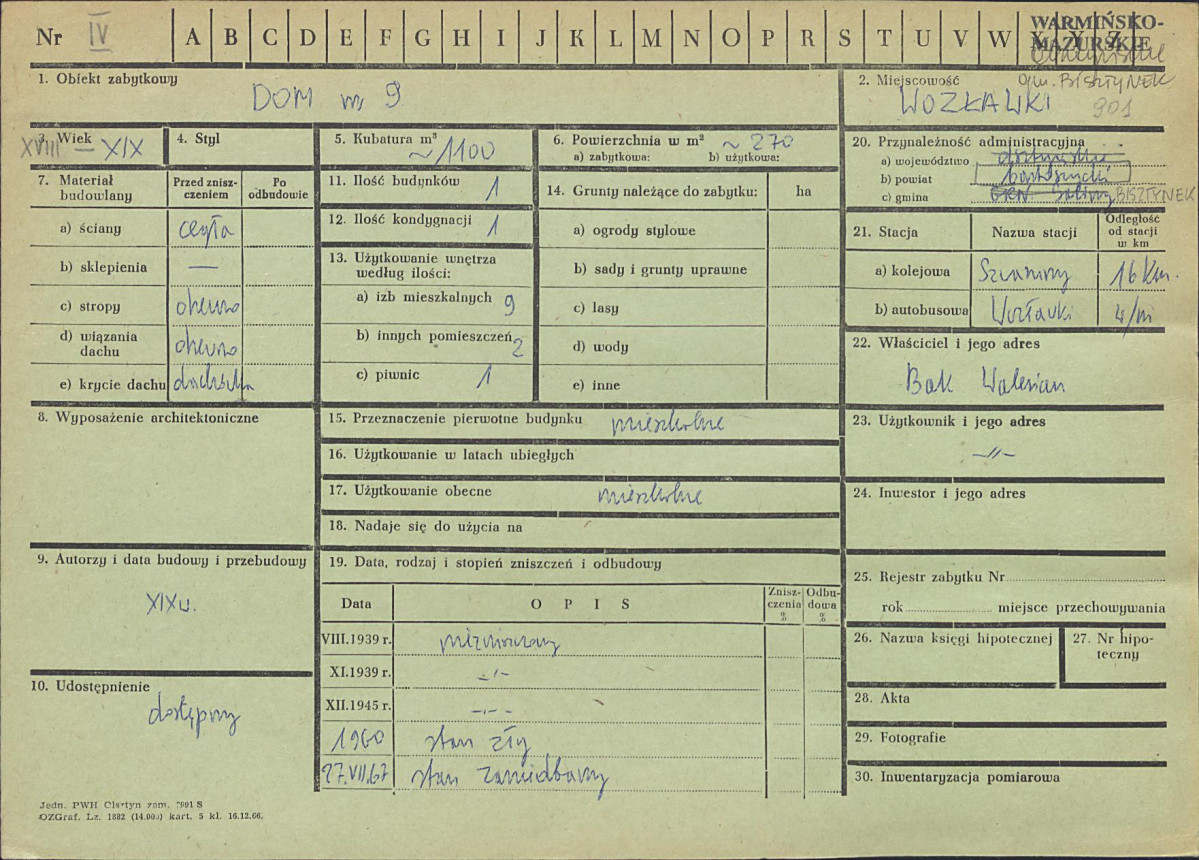 Nr IV A B C D E F G H I J K L M N O P R S T U V W X Y Z
WARMIŃSKO-
MAZURSKIE
1. Obiekt zabytkowy
DOM nr 9
2. Miejscowość gm. BISZTYNEK
WOZŁAWKI 901
3. Wiek
XVIII — XIX
4. Styl
5. Kubatura m³
~1100
6. Powierzchnia w m² ~ 270
a) zabytkowa: b) użytkowa:
7. Materiał budowlany
Przed zniszczeniem
Po odbudowie
a) ściany cegła
b) sklepienia —
c) stropy drewno
d) wiązania dachu drewno
e) krycie dachu dachówka
8. Wyposażenie architektoniczne
9. Autorzy i data budowy i przebudowy
XIX w.
10. Udostępnienie
dostępny
11. Ilość budynków 1
12. Ilość kondygnacji 1
13. Użytkowanie wnętrza
według ilości:
a) izb mieszkalnych 9
b) innych pomieszczeń 2
c) piwnic 1
14. Grunty należące do zabytku: ha
a) ogrody stylowe
b) sady i grunty uprawne
c) lasy
d) wody
e) inne
15. Przeznaczenie pierwotne budynku mieszkalne
16. Użytkowanie w latach ubiegłych
17. Użytkowanie obecne mieszkalne
18. Nadaje się do użycia na
19. Data, rodzaj i stopień zniszczeń i odbudowy
Data O P I S Zniszczenia % Odbudowa %
VIII.1939 r. niezniszczony
XI.1939 r. -"-
XII.1945 r. -"-
1960 stan zły
27.VII.67 stan zaniedbany
20. Przynależność administracyjna
a) województwo olsztyńskie
b) powiat bartoszycki
c) gmina BISZTYNEK
21. Stacja
Nazwa stacji
Odległość
od stacji
w km
a) kolejowa 16 km.
b) autobusowa Wozławki
22. Właściciel i jego adres
Bak Walerian
23. Użytkownik i jego adres
-"-
24. Inwestor i jego adres
25. Rejestr zabytku Nr
rok miejsce przechowywania
26. Nazwa księgi hipotecznej
27. Nr hipoteczny
28. Akta
29. Fotografie
30. Inwentaryzacja pomiarowa
Jedn. PWH Olsztyn zam. 7991 S
OZGraf. Lz. 1882 (14.000) kart. 5 kl. 16.12.66.